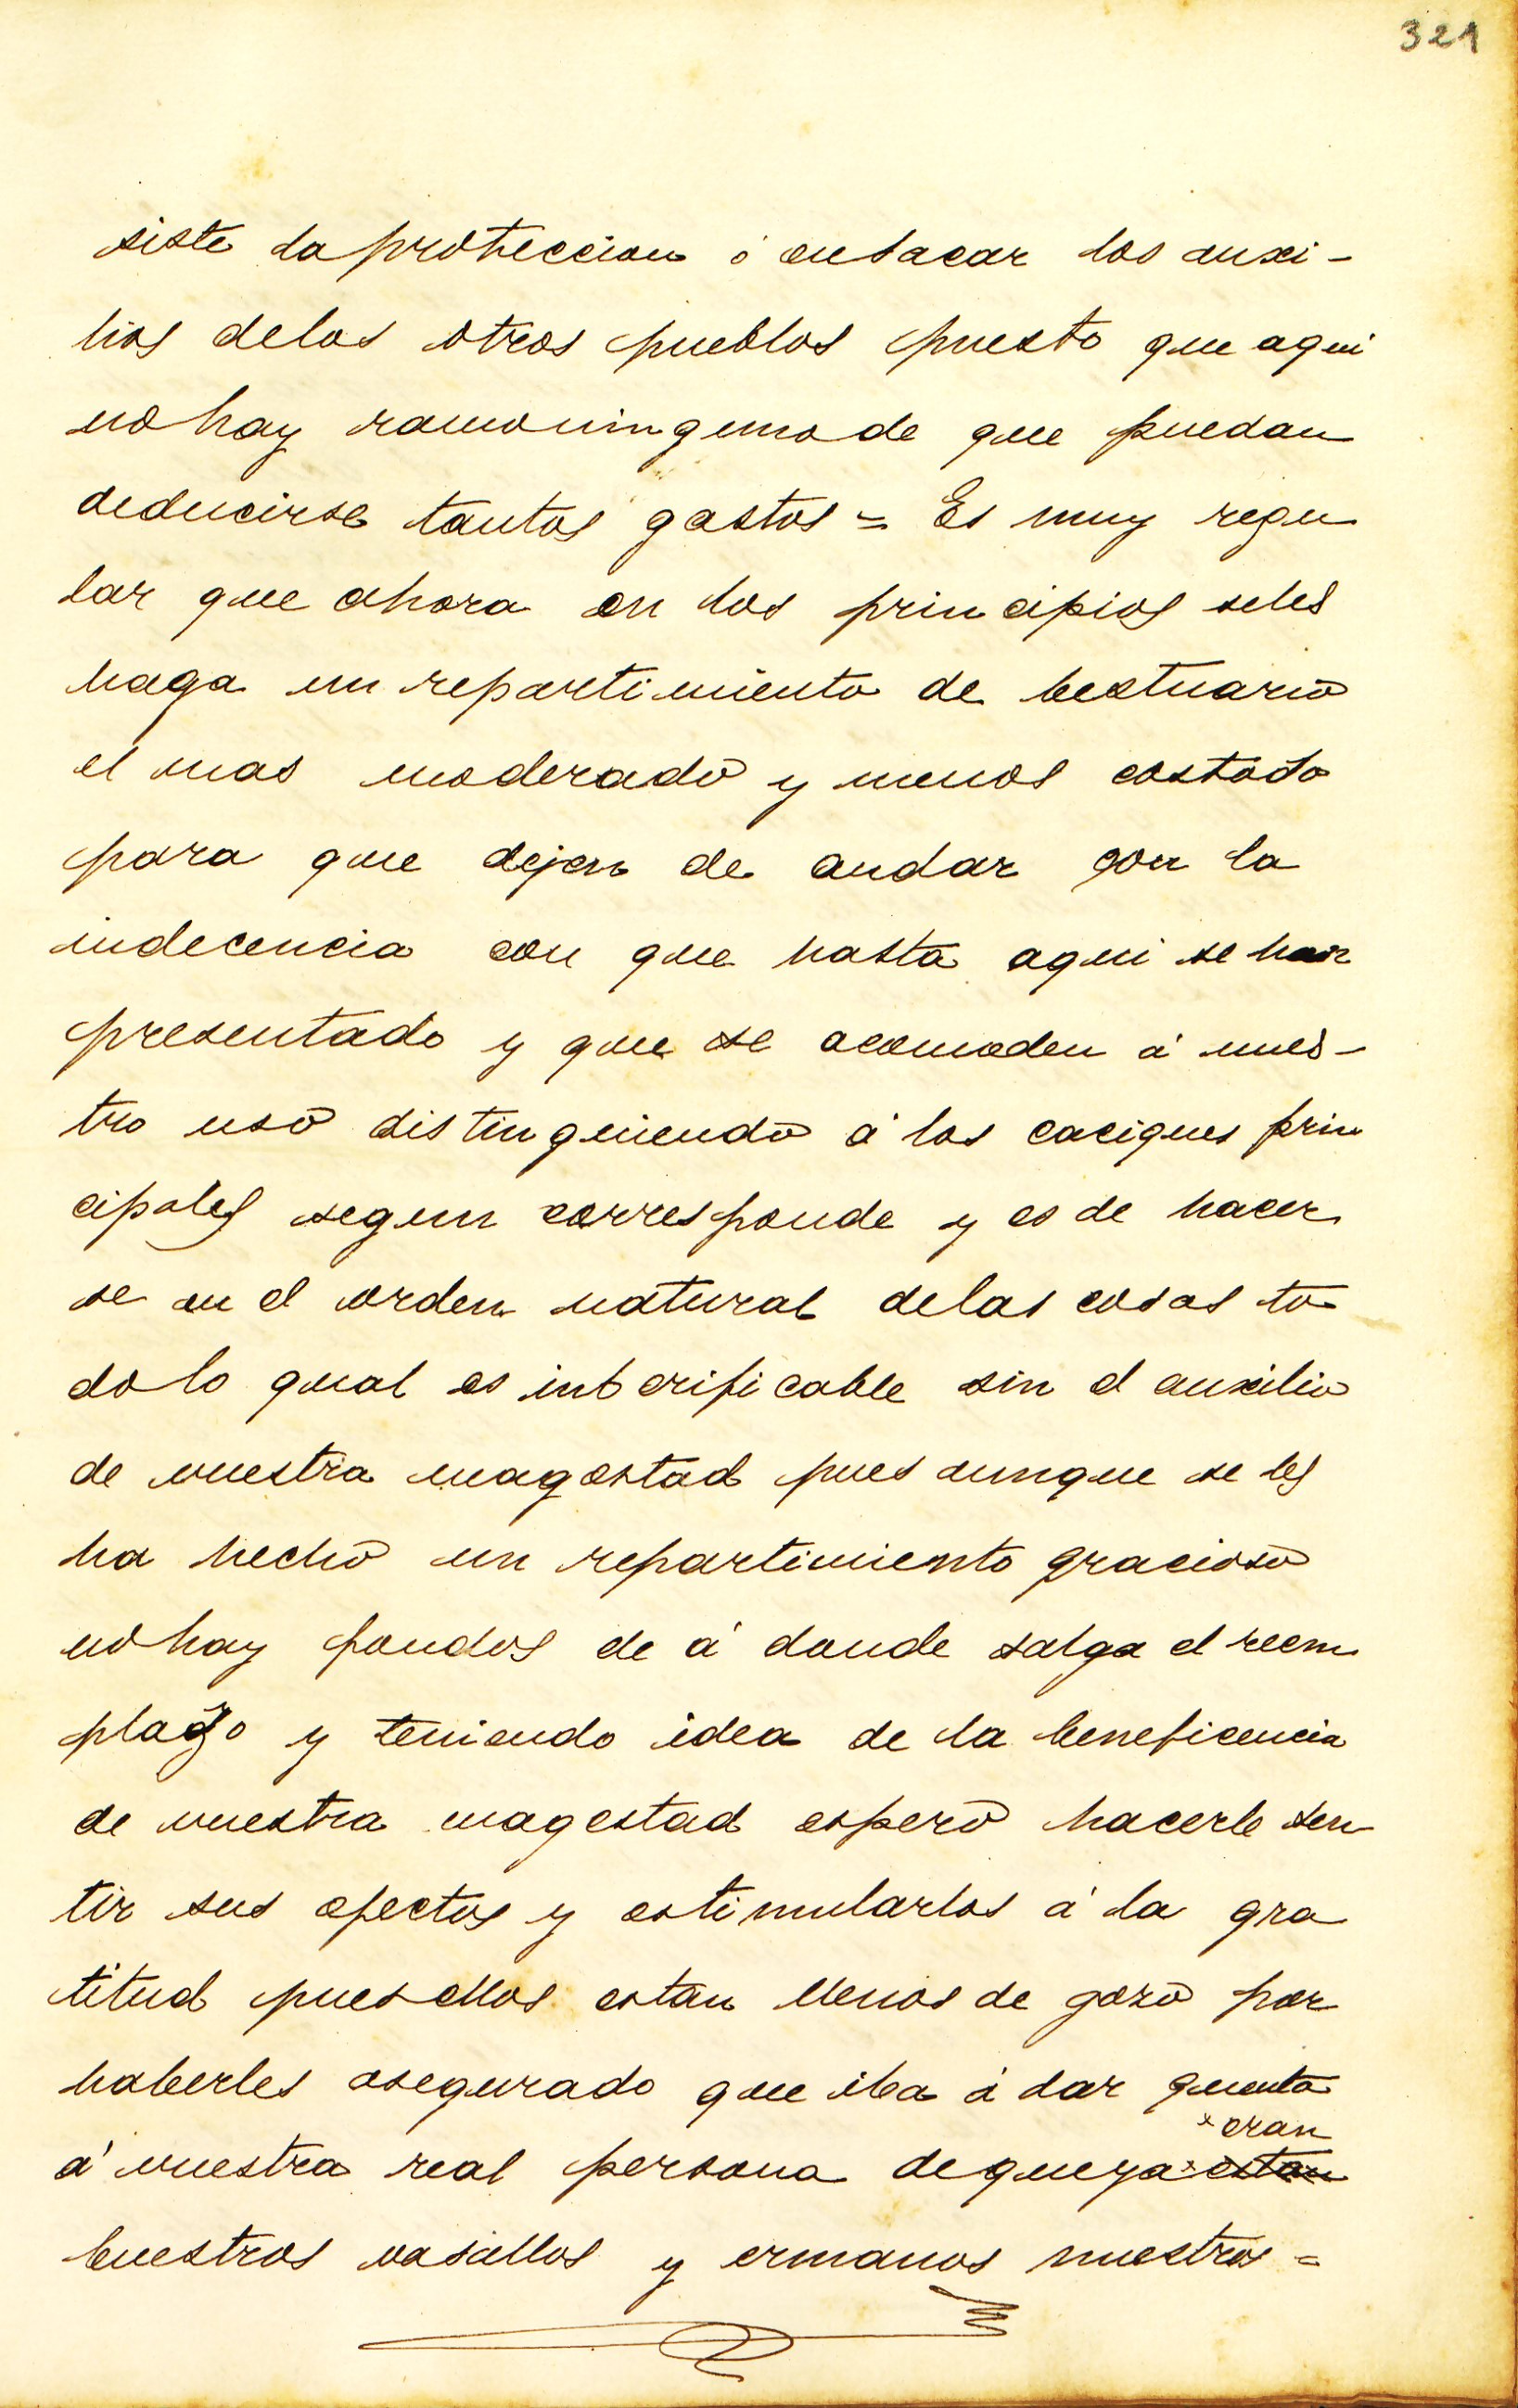 321
siste la proteccion ó ensacar los auxi-
lios delos otros pueblos puesto que aqui
no hay ramoningunode que puedan
deducirse tantos gastos = Es muy regu
lar que ahora en los principios seles
haga un repartimiento de bestuario
el mas moderado y menos costoso
para que dejen de andar con la
indecencia con que hasta aqui se han
presentado y que se acomoden á nues-
tro uso distinguiendo á los caciques prin
cipales segun corresponde y es de hacer
se en el orden natural delas cosas to
do lo qual es inberificable sin el auxilio
de vuestra magestad pues aunque se les
ha hecho un repartimiento gracioso
no hay fondos de á donde salga el reem
plazo y teniendo idea de la beneficencia
de vuestra magestad espero hacerle sen
tir sus efectos y estimularlos á la gra
titud pues ellos estan llenos de gozo por
haberles asegurado que iba á dar quenta
eran
á vuestra real persona de queya estan
buestros vasallos y ermanos nuestros =